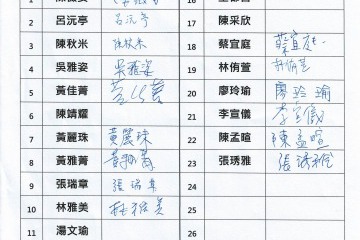 2 呂沅亭 呂沅亭 17 陳采欣
3 陳秋米 陳秋米 18 蔡宜庭 蔡宜庭
4 吳雅姿 吳雅姿 19 林侑萱 林侑萱
5 黃佳菁 20 廖玲瑜 廖玲瑜
6 陳靖耀 21 李宣儀 李宣儀
7 黃麗珠 黃麗珠 22 陳孟暄 陳孟暄
8 黃雅菁 黃雅菁 23 張琇雅 張琇雅
9 張瑞章 張瑞章 24
10 林雅美 林雅美 25
11 湯文瑜 26